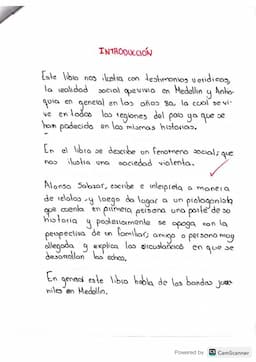 INTRODUCCIÓN
Este libro nos ilustra con testimonios veridicos,
la realidad social que vivia en Medellin y Antio-
quia en general en los años 80, la cual se vi-
ve en todas las regiones del pais ya que se
han padecido en las mismas historias.
En el libro se describe un fenomeno social, que
nos ilustra una sociedad violenta.
Alonso Salazar, escribe e interpreta a manera
de relatos y luego da lugar a un protagonista
que cuenta en primera persona una parte de su
historia y posteriormente se apoya con la
perspectiva de un familiar, amigo o persona muy
allegada y explica las circustancias en que se
desarrollan los echos.
En general este libro habla de las bandas juve
niles en Medellin.
Powered by CS CamScanner